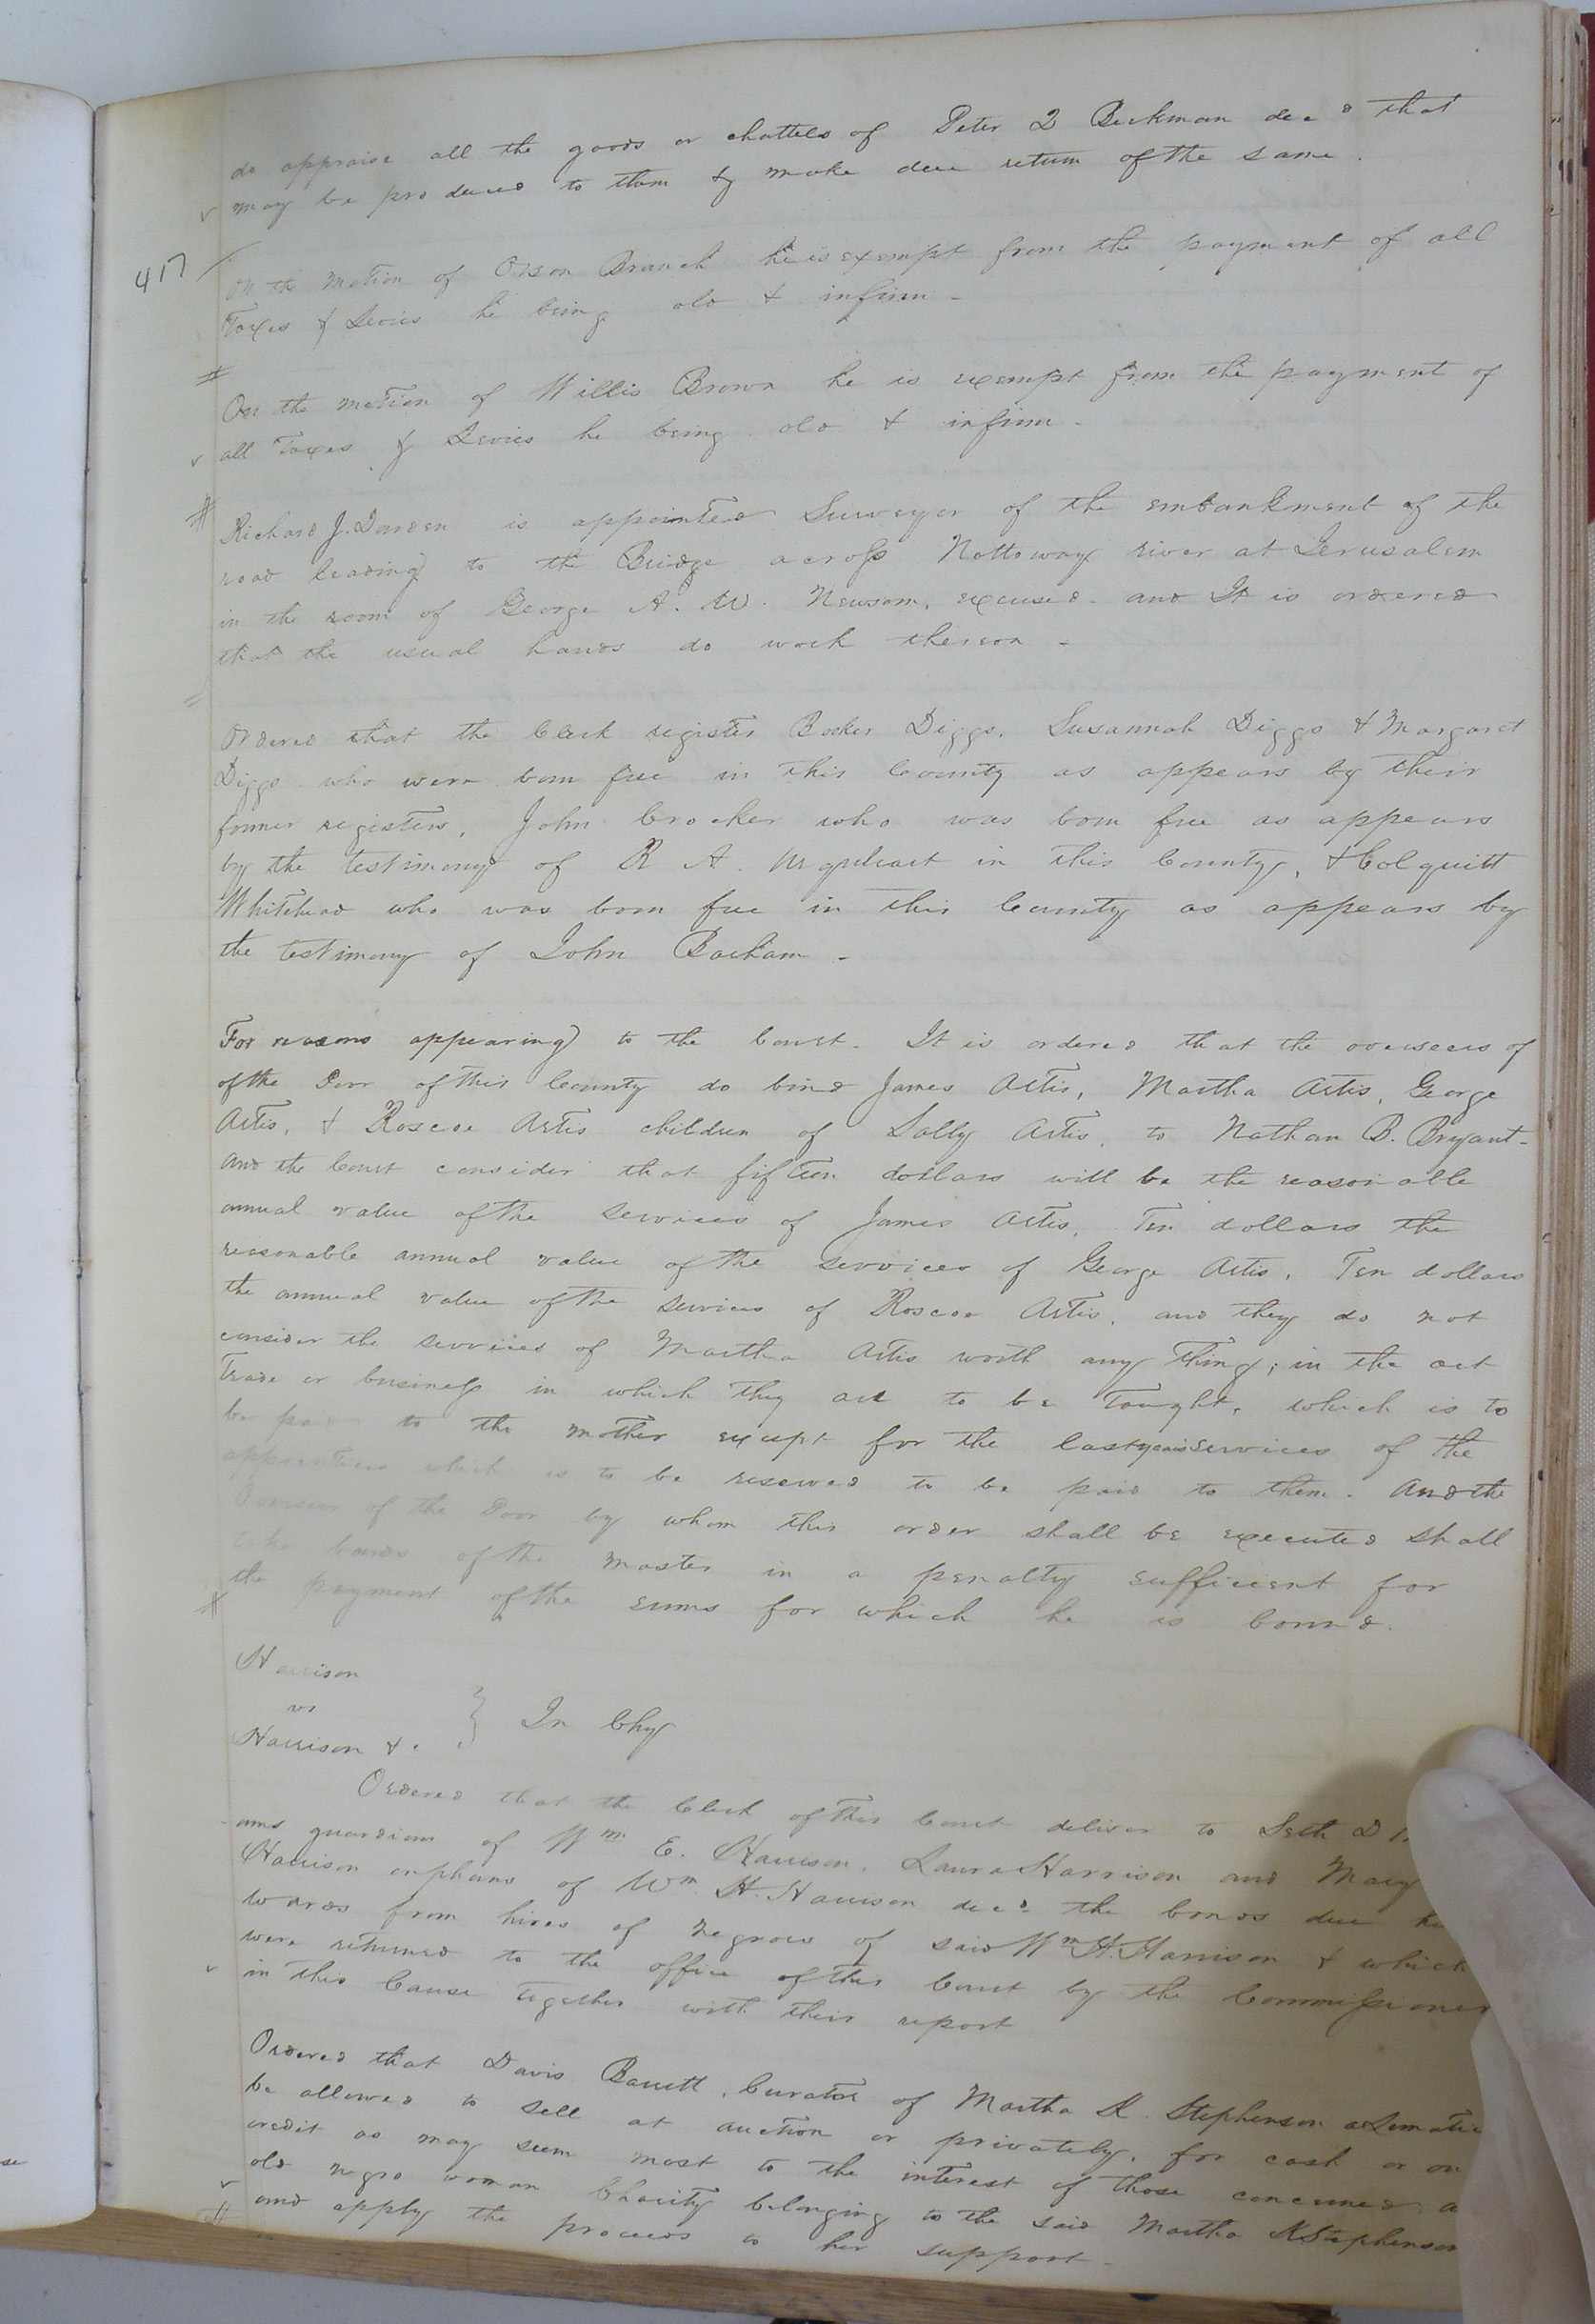 do appraise all the goods or chattels of Peter 2 Beckman dec<sup>d</sup> that
may be produced to them & make due return of the same.
417
On the motion of Orson Branch he is exempt from the payment of all
Taxes & Levies he being old & infirm -
On the motion of Willis Brown he is exempt from the payment of
all Taxes & Levies he being old & infirm -
Richard J. Darden is appointed Surveyor of the embankment of the
road leading to the Bridge across Nottoway river at Jerusalem
in the room of George A. W. Newsom, excused - and It is ordered
that the usual hands do work thereon -
Ordered that the Clerk register Booker Diggs, Susannah Diggs & Margaret
Diggs who were born free in this County as appears by their
former registers, John Crocker who was born free as appears
by the testimony of R A. Urquhart in this County, & Colquitt
Whitehead who was born free in this County as appears by
the testimony of John Barham -
For reasons appearing to the Court. It is ordered that the overseers of
of the Poor of this County do bind James Artis, Martha Artis, George
Artis, & Roscoe Artis children of Sally Artis, to Nathan B. Bryant -
and the Court consider that fifteen dollars will be the reasonable
annual value of the services of James Artis, Ten dollars the
reasonable annual value of the services of George Artis, Ten dollars
the annual value of the services of Roscoe Artis, and they do not
consider the services of Martha Artis worth any thing; in the art
trade or business in which they are to be taught, which is to
be paid to the mother except for the last years services of the
apprentices which is to be reserved to be paid to them. And the
Overseer of the Poor by whom this order shall be executed shall
take bonds of the master in a penalty sufficient for
the payment of the sums for which he is bound.
Harrison
vs
Harrison & .
} In Chy
Ordered that the Clerk of this Court deliver to Seth D
ams guardian of Wm E. Harrison, Laura Harrison and Mary
Harrison orphans of Wm H. Harrison decd the bonds due
wards from hires of negroes of said Wm H. Harrison & which
were returned to the office of this Court by the Commissioners
in this Cause together with their report
Ordered that Davis Barrett, Curator of Martha K. Stephenson a Lunatic
be allowed to sell at auction or privately, for cash or on
credit as may seem most to the interest of those concerned a
old negro woman Charity belonging to the said Martha K Stephenson
and apply the proceeds to her support -